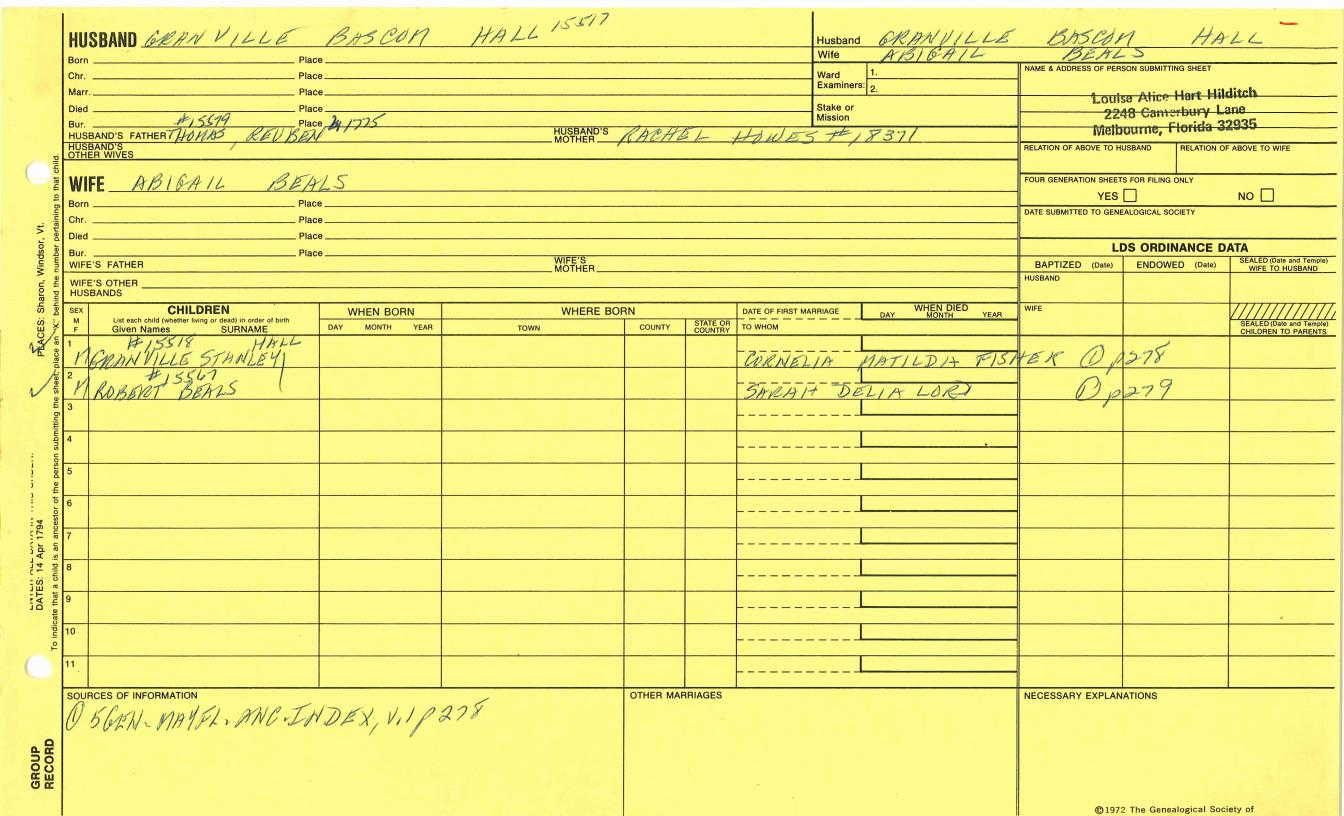 HUSBAND GRANVILLE BASCOM HALL 15517
Born Place
Chr. Place
Marr. Place
Died Place
Bur. #15579 Place 1775
HUSBAND'S FATHER THOMAS, REUBEN HUSBAND'S MOTHER RACHEL HOWES #18371
HUSBAND'S OTHER WIVES
Husband GRANVILLE BASCOM HALL
Wife ABIGAIL BEALS
Ward Examiners: 1.
2.
Stake or Mission
NAME & ADDRESS OF PERSON SUBMITTING SHEET
Louise Alice Hart Hilditch
2248 Canterbury Lane
Melbourne, Florida 32935
RELATION OF ABOVE TO HUSBAND RELATION OF ABOVE TO WIFE
FOUR GENERATION SHEETS FOR FILING ONLY
YES NO
DATE SUBMITTED TO GENEALOGICAL SOCIETY
WIFE ABIGAIL BEALS
Born Place
Chr. Place
Died Place
Bur. Place
WIFE'S FATHER WIFE'S MOTHER
WIFE'S OTHER HUSBANDS
LDS ORDINANCE DATA
BAPTIZED (Date) ENDOWED (Date) SEALED (Date and Temple) WIFE TO HUSBAND
HUSBAND
WIFE
SEALED (Date and Temple) CHILDREN TO PARENTS
SEX M F
CHILDREN
List each child (whether living or dead) in order of birth
Given Names SURNAME
WHEN BORN
DAY MONTH YEAR
WHERE BORN
TOWN COUNTY STATE OR COUNTRY
DATE OF FIRST MARRIAGE
TO WHOM
WHEN DIED
DAY MONTH YEAR
1 #15518 HALL
M GRANVILLE STANLEY CORNELIA MATILDA FISHER ① p278
2 #15567
M ROBERT BEALS SARAH DELIA LORD ① p279
3
4
5
6
7
8
9
10
11
SOURCES OF INFORMATION
① 5GEN. MAYFL. ANC. INDEX, V.1 p278
OTHER MARRIAGES
NECESSARY EXPLANATIONS
©1972 The Genealogical Society of
PLACES: Sharon, Windsor, Vt.
DATES: 14 Apr 1794
To indicate that a child is an ancestor of the person submitting the sheet, place an "X" behind the number pertaining to that child.
GROUP RECORD